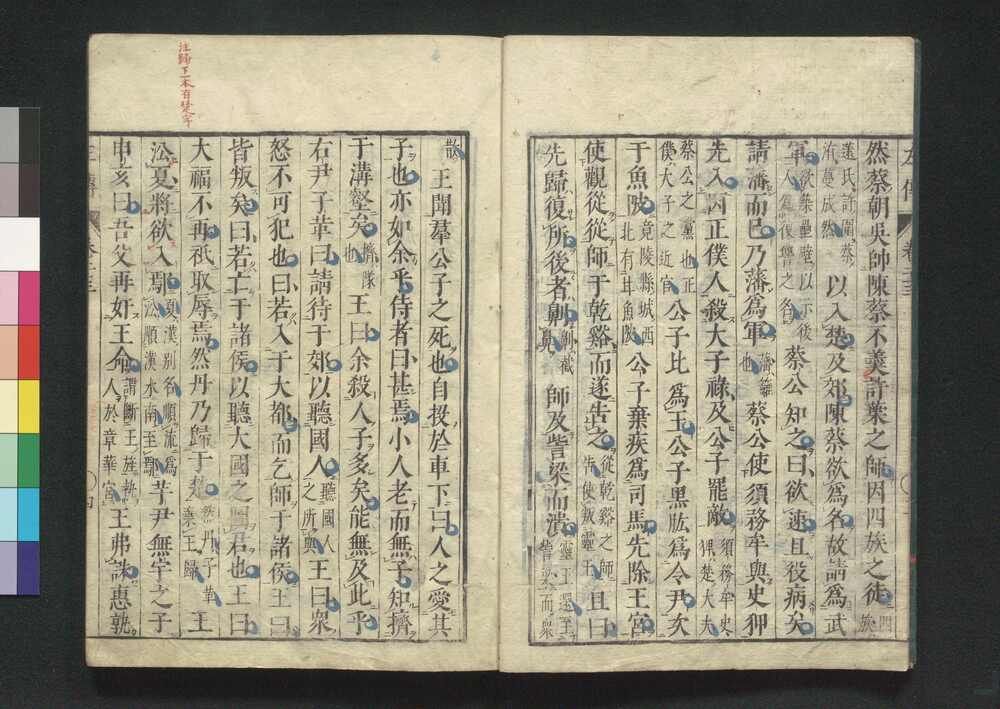 然蔡朝吳帥陳蔡不羹許葉之師因四族之徒四族
薳氏許圍蔡洧蔓成然以入楚及郊陳蔡欲爲名故請爲武
軍欲築壘壁以示後人爲復讎之名蔡公知之曰欲速且役病矣
請藩而已乃藩爲軍藩籬也蔡公使須務牟與史猈
先入因正僕人殺大子祿及公子罷敵須務牟史猈楚大夫
蔡公之黨也正僕大子之近官公子比爲王公子黑肱爲令尹次
于魚陂竟陵縣城西北有甘魚陂公子棄疾爲司馬先除王宮
使觀從從師于乾谿而遂告之從乾谿之師告使叛靈王且曰
先歸復所後者劓劓截鼻師及訾梁而潰靈王還至訾梁而衆
散王聞羣公子之死也自投於車下曰人之愛其
子也亦如余乎侍者曰甚焉小人老而無子知擠
于溝壑矣擠隊也王曰余殺人子多矣能無及此乎
右尹子革曰請待于郊以聽國人聽國人之所與王曰衆
怒不可犯也曰若入于大都而乞師于諸侯王曰
皆叛矣曰若亡于諸侯以聽大國之圖君也王曰
大福不再祇取辱焉然丹乃歸于楚然丹子革棄王歸王
沿夏將欲入鄢夏漢別名順流爲沿順漢水南至鄢芋尹無宇之子
申亥曰吾父再奸王命謂斷王旌執人於章華宮王弗誅惠孰
注歸下一本有楚字